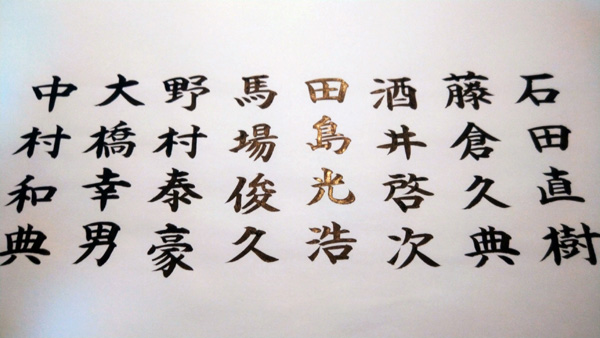 石田直樹
藤倉久典
酒井啓次
田島光浩
馬場俊久
野村泰豪
大橋幸男
中村和典